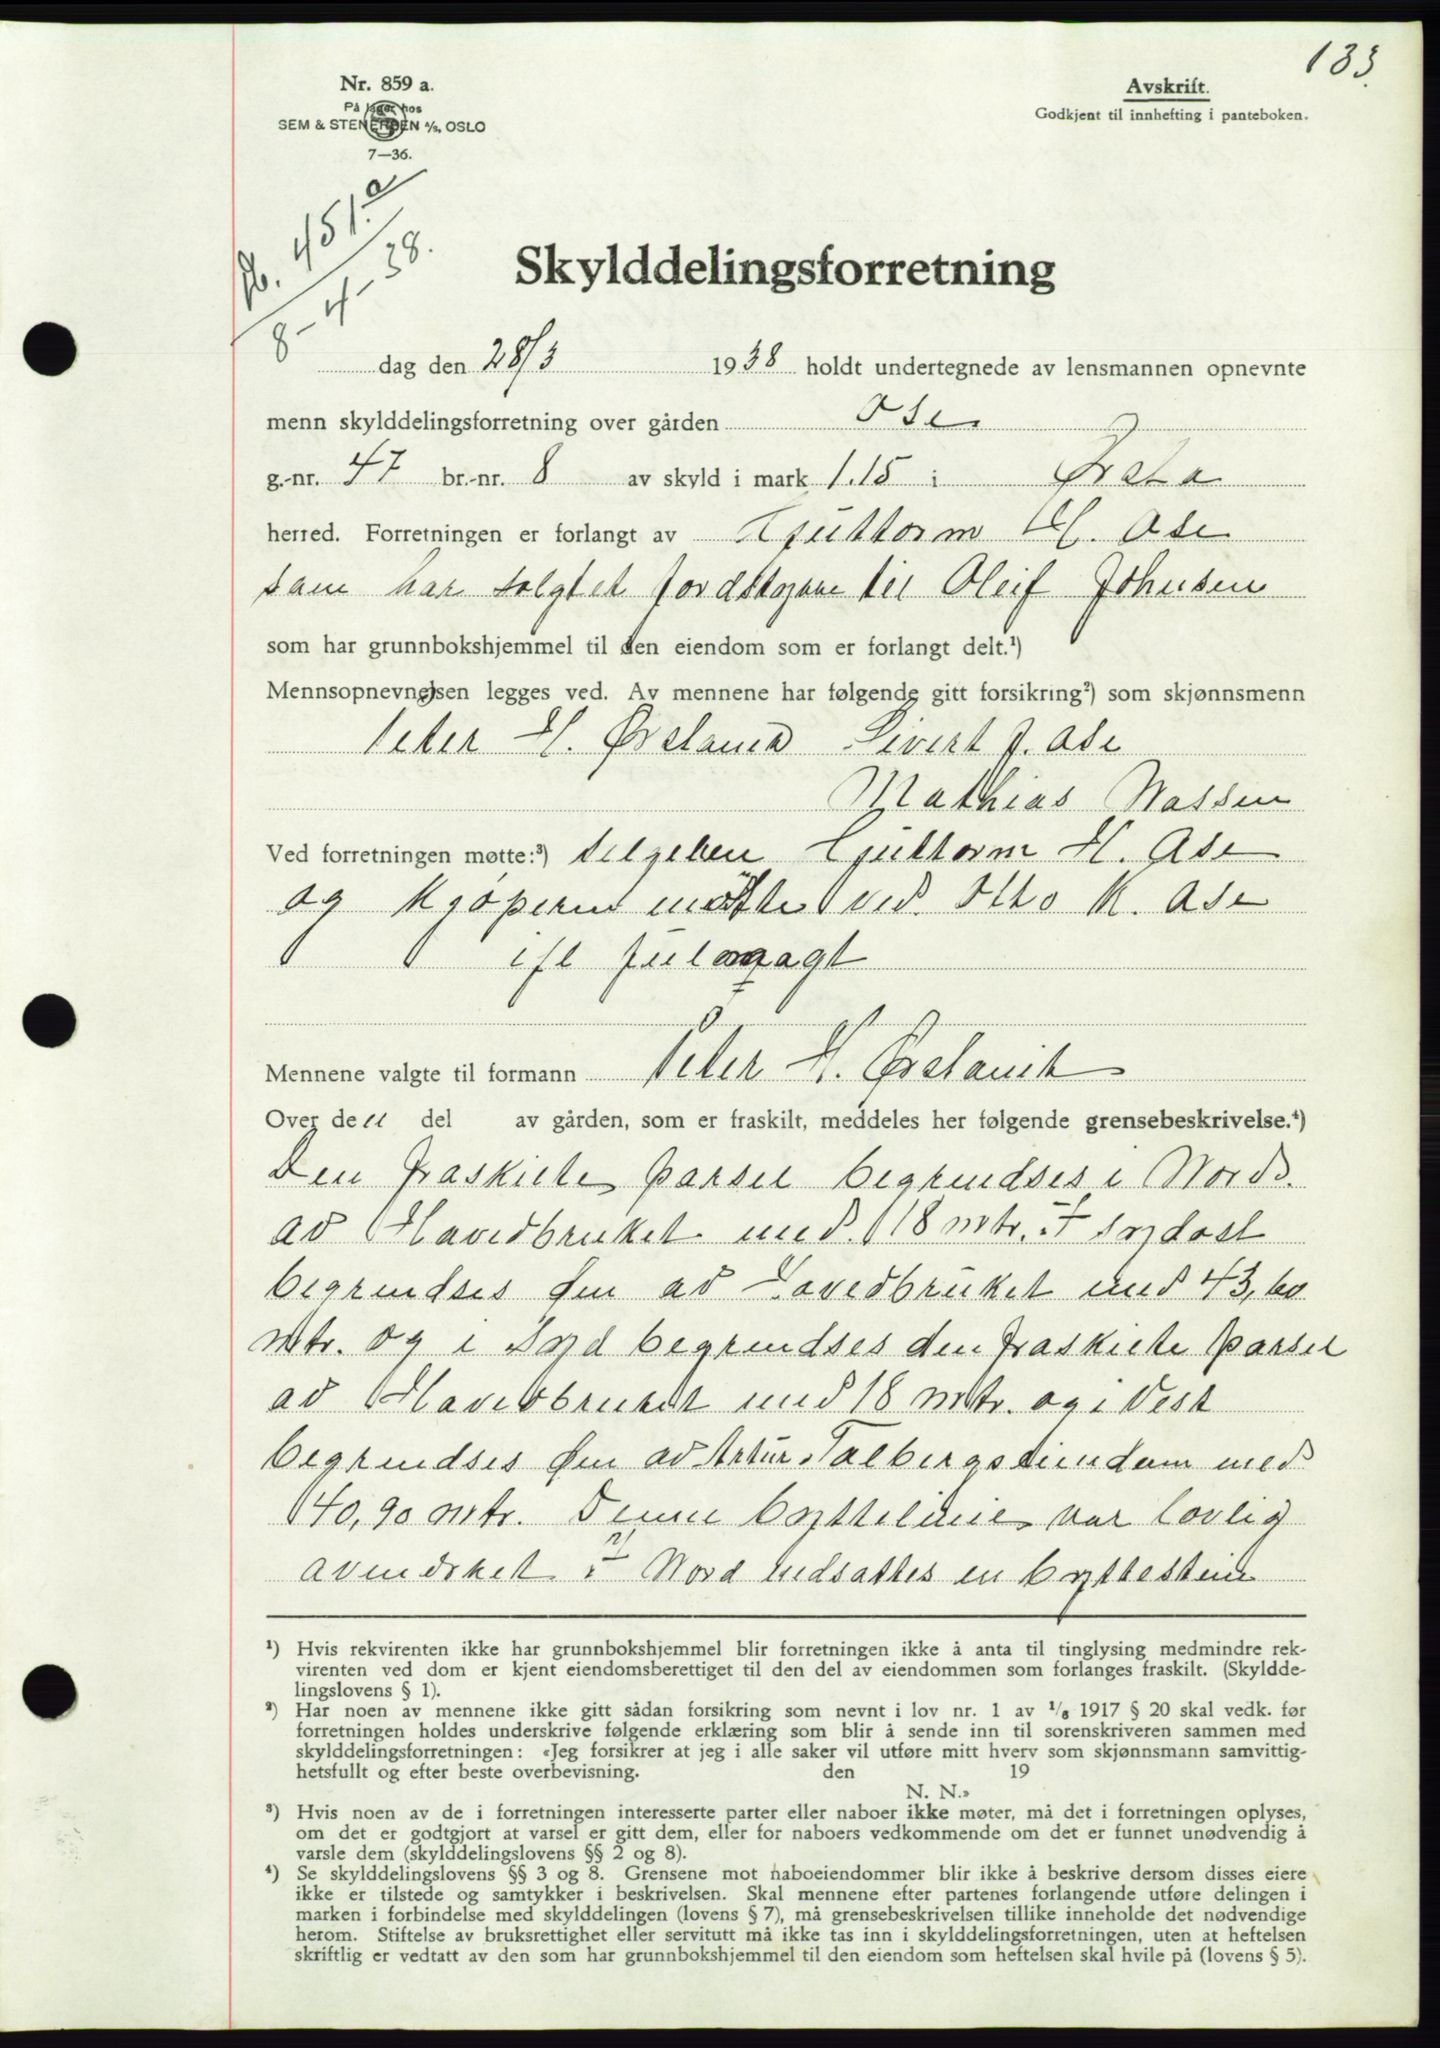 133.
Nr. 859 a.
På lager hos
SEM & STENERSEN A/S, OSLO
7—36.
Avskrift.
Godkjent til innhefting i panteboken.
451 a
8-4-38.
Skylddelingsforretning
dag den 28/3 1938 holdt undertegnede av lensmannen opnevnte
menn skylddelingsforretning over gården Ose
g.-nr. 47 br.-nr. 8 av skyld i mark 1.15 i Ørsta
herred. Forretningen er forlangt av Guttorm H. Ose
som har solgt et jordstykke til Oleif Johnsen
som har grunnbokshjemmel til den eiendom som er forlangt delt.¹)
Mennsopnevnelsen legges ved. Av mennene har følgende gitt forsikring²) som skjønnsmenn
Peter H. Ørstavik Sivert J. Ose
Mathias Nassen
Ved forretningen møtte:³) selgeren Guttorm H. Ose
og kjøperen møtte ved Otto K. Ose
ifl fulmagt
Mennene valgte til formann Peter H. Ørstavik
Over den del av gården, som er fraskilt, meddeles her følgende grensebeskrivelse.⁴)
Den fraskilte parsel begrendses i Nord
av Hovedbruket med 18 mtr. I sydost
begrendses den av Hovedbruket med 43,60
mtr. og i Syd begrendses den fraskilte parsel
av Hovedbruket med 18 mtr. og i Vest
begrendses den av Artur Talbergs eiendom med
40,90 mtr. Denne byttelinie var lovlig
avmerket. I Nord nedsattes en byttestein
¹) Hvis rekvirenten ikke har grunnbokshjemmel blir forretningen ikke å anta til tinglysing medmindre rek-
virenten ved dom er kjent eiendomsberettiget til den del av eiendommen som forlanges fraskilt. (Skyldde-
lingslovens § 1).
²) Har noen av mennene ikke gitt sådan forsikring som nevnt i lov nr. 1 av 1/6 1917 § 20 skal vedk. før
forretningen holdes underskrive følgende erklæring som blir å sende inn til sorenskriveren sammen med
skylddelingsforretningen: «Jeg forsikrer at jeg i alle saker vil utføre mitt hverv som skjønnsmann samvittig-
hetsfullt og efter beste overbevisning. den 19
N. N.»
³) Hvis noen av de i forretningen interesserte parter eller naboer ikke møter, må det i forretningen oplyses,
om det er godtgjort at varsel er gitt dem, eller for naboers vedkommende om det er funnet unødvendig å
varsle dem (skylddelingslovens §§ 2 og 8).
⁴) Se skylddelingslovens §§ 3 og 8. Grensene mot naboeiendommer blir ikke å beskrive dersom disses eiere
ikke er tilstede og samtykker i beskrivelsen. Skal mennene efter partenes forlangende utføre delingen i
marken i forbindelse med skylddelingen (lovens § 7), må grensebeskrivelsen tillike inneholde det nødvendige
herom. Stiftelse av bruksrettighet eller servitutt må ikke tas inn i skylddelingsforretningen, uten at heftelsen
skriftlig er vedtatt av den som har grunnbokshjemmel til den eiendom som heftelsen skal hvile på (lovens § 5).